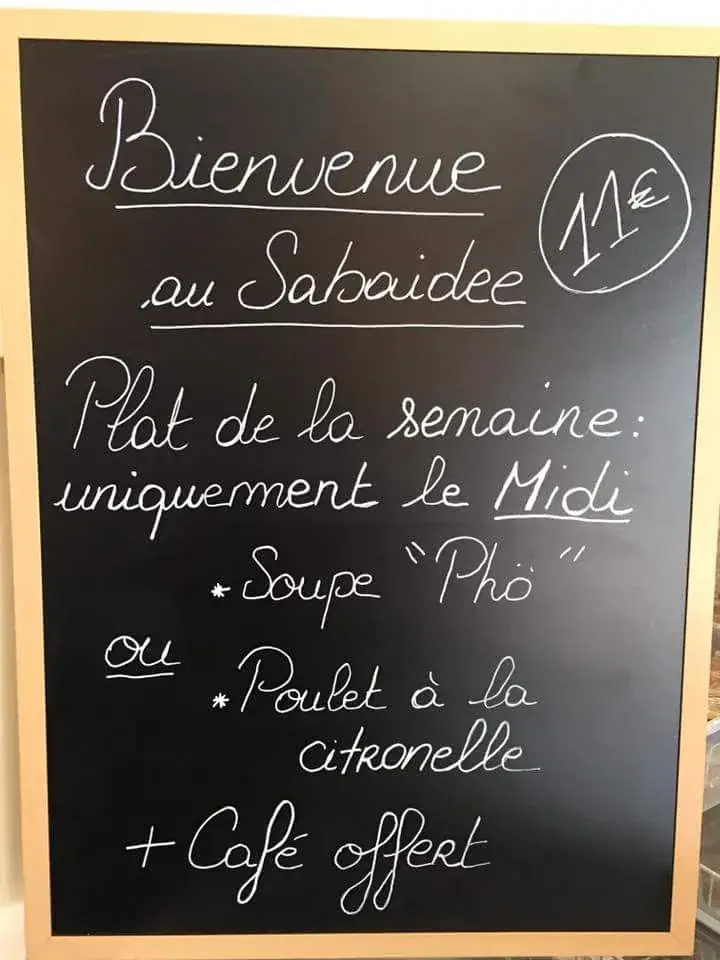 Bienvenue
au Sabaidee
11€
Plat de la semaine:
uniquement le Midi
* Soupe "Phö"
ou
* Poulet à la
citronelle
+ Café offert